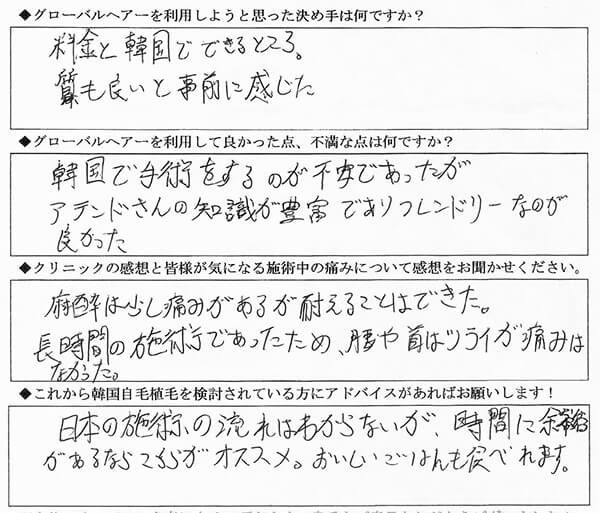 ◆グローバルヘアーを利用しようと思った決め手は何ですか?
料金と韓国でできるところ。
質も良いと事前に感じた
◆グローバルヘアーを利用して良かった点、不満な点は何ですか?
韓国で手術をするのが不安であったが
アテンドさんの知識が豊富でありフレンドリーなのが
良かった
◆クリニックの感想と皆様が気になる施術中の痛みについて感想をお聞かせください。
麻酔は少し痛みがあるが耐えることはできた。
長時間の施術であったため、腰や首はツライが痛みは
なかった。
◆これから韓国自毛植毛を検討されている方にアドバイスがあればお願いします!
日本の施術の流れはわからないが、時間に余裕
があるならこちらがオススメ。おいしいごはんも食べれます。